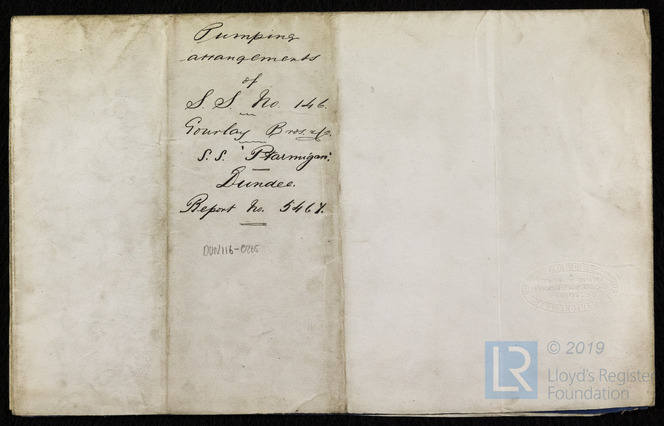 Pumping
arrangements
of
S. S. No. 146.
Gourlay Bros. & Co.
S. S. 'Ptarmigan'.
Dundee.
Report No. 5467.
DUN116-0265
© 2019
LR
Lloyd's Register
Foundation